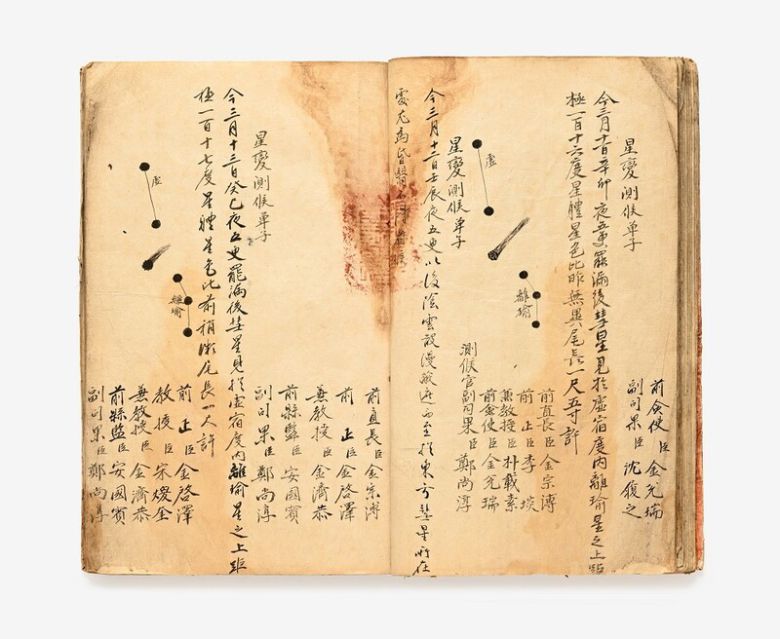 前僉使臣金兌瑞
副司果臣沈履之
星變測候單子
今三月十一日辛卯夜五更罷漏後彗星見於虛宿度內離瑜星之上距
極一百十六度星體星色比昨無異尾長一尺五寸許
虛
離瑜
前直長臣金宗溥
前正臣李
兼教授臣朴載素
前僉使臣金兌瑞
測候官副司果臣鄭尚淳
星變測候單子
今三月十二日壬辰夜五更以後陰雲漫蔽遮而至於東方彗星所在
處尤為昏翳不得看候
前直長臣金宗溥
前正臣金啓澤
兼教授臣金濟恭
前縣監臣安國賓
副司果臣鄭尚淳
星變測候單子
今三月十三日癸巳夜五更罷漏後彗星見於虛宿度內離瑜星之上距
極一百十七度星體星色比前稍微尾長一尺許
虛
離瑜
前正臣金啓澤
教授臣宋
兼教授臣金濟恭
前縣監臣安國賓
副司果臣鄭尚淳